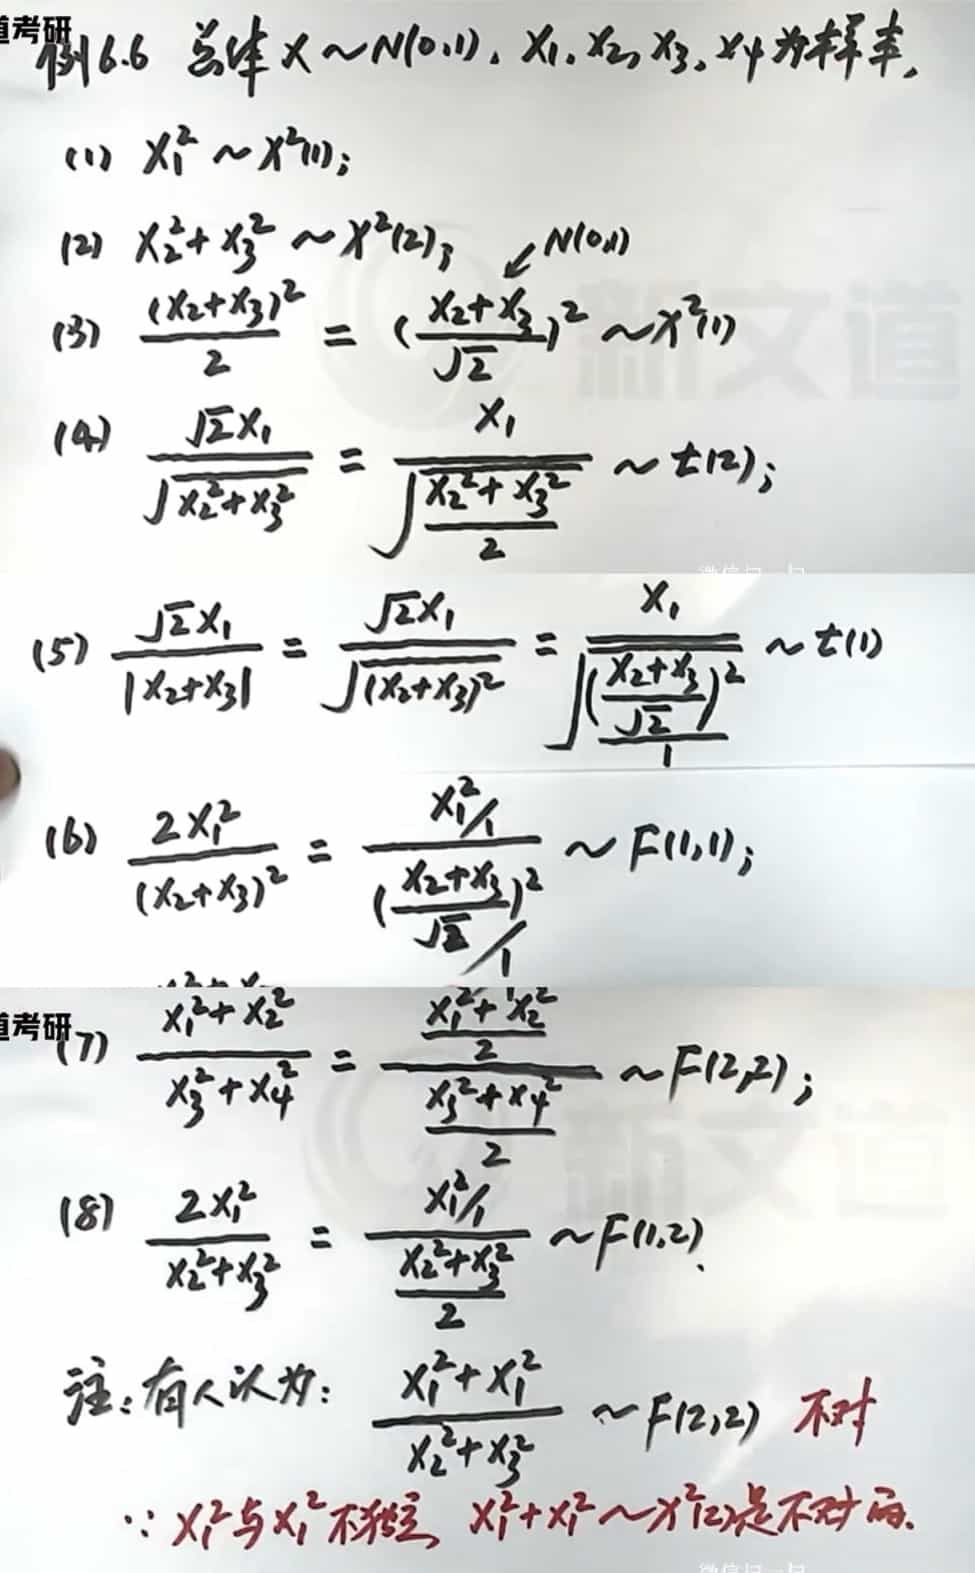 道考研
例6.6 总体X~N(0,1), X₁,X₂,X₃,X₄为样本,
(1) X₁²~χ²(1);
(2) X₂²+X₃²~χ²(2); ↙N(0,1)
(3) (X₂+X₃)²/2 = ((X₂+X₃)/√2)² ~χ²(1)
(4) √2X₁/√(X₂²+X₃²) = X₁/√((X₂²+X₃²)/2) ~t(2);
(5) √2X₁/|X₂+X₃| = √2X₁/√((X₂+X₃)²) = X₁/√(((X₂+X₃)/√2)²/1) ~t(1)
(6) 2X₁²/(X₂+X₃)² = (X₁²/1)/(((X₂+X₃)/√2)²/1) ~F(1,1);
道考研
(7) (X₁²+X₂²)/(X₃²+X₄²) = ((X₁²+X₂²)/2)/((X₃²+X₄²)/2) ~F(2,2);
(8) 2X₁²/(X₂²+X₃²) = (X₁²/1)/((X₂²+X₃²)/2) ~F(1,2).
注:有人认为: (X₁²+X₁²)/(X₂²+X₃²) ~F(2,2) 不对
∵ X₁²与X₁²不独立, X₁²+X₁²~χ²(2)是不对的.
新文道
新文道